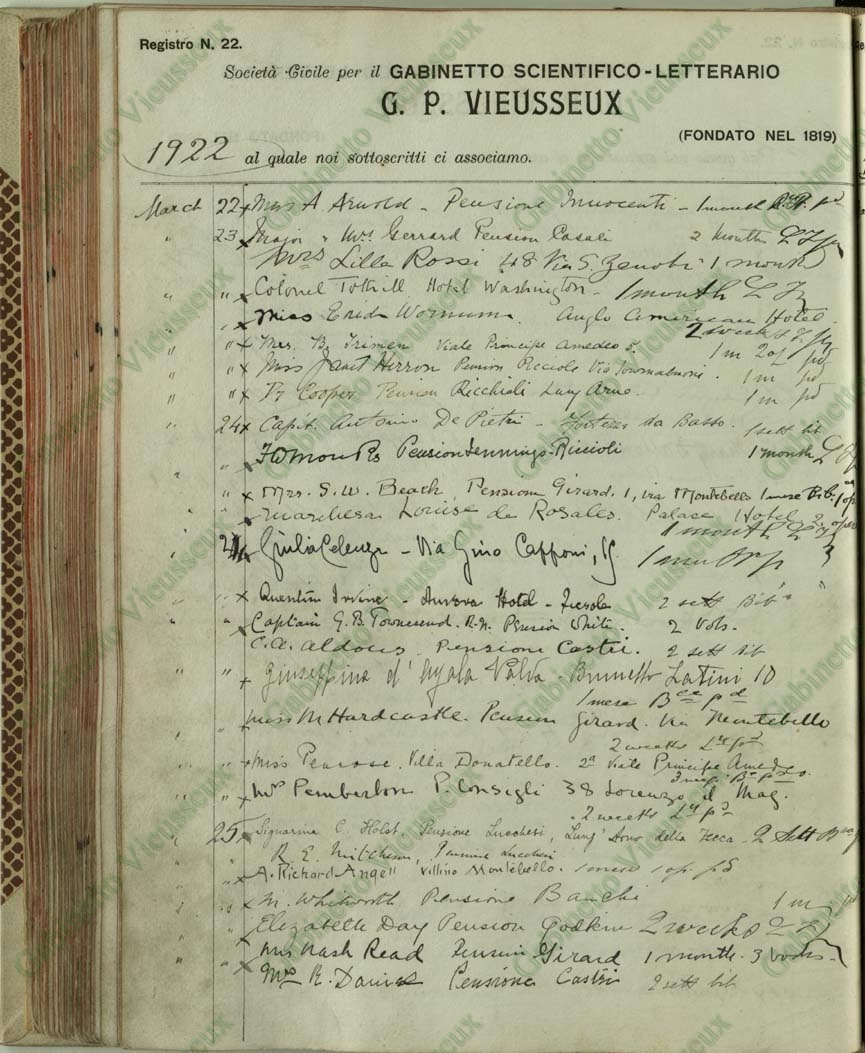 Registro N. 22.
Società Civile per il GABINETTO SCIENTIFICO-LETTERARIO
G. P. VIEUSSEUX
(FONDATO NEL 1819)
1922 al quale noi sottoscritti ci associamo.
March 22 x Miss A Arnold - Pensione Innocenti - 1 month
" 23 x Major & Mrs Gerrard Pension Casali 2 months
Mrs Lilla Rossi 48 Via S. Zenobi 1 month
" " x Colonel Tothill Hotel Washington - 1 month
Miss Enid Anglo American Hotel
2 weeks
" " x Mrs. B. Trimen Viale Principe Amedeo 5. 1 m
" " x Miss Janet Herron Pension Via Tournabuoni. 1 m pd
" " x Cooper Pension Ricchioli Lung Arno 1 m pd
24 x Capit. Antonio De Pietri - Fortezza da Basso. 1 sett bib
" Pension Jennings-Riccioli 1 month
" " x Mrs. S. W. Beach, Pensione Girard. 1, via Montebello 1 mese Bib.
" Marchesa Louise de Rosales. Palace Hotel
1 month
x Giulia Celenza - Via Gino Capponi,
" " x Quentin Irvine - Aurora Hotel - Fiesole 2 sett Bib
" " x Captain G. B. Townsend. R.N. Pension White. 2 Vols.
C. A. Aldous Pensione Castri. 2 sett bib
" " x Giuseppina d'Ayala Valva - Brunetto Latini 10
1 mese
" Miss M Hardcastle. Pension Girard. Via Montebello
2 weeks
" " x Miss Penrose. Villa Donatello. 2a Viale Principe Amedeo
" " x Mrs Pemberton P. Consigli 38 Lorenzo il Mag.
2 weeks
25 x Signorina C. Holst, Pensione Lucchesi, Lung' Arno della Zecca 2 Sett
R. E. Pensione Lucchesi
" x A. Richard Angell Villino Montebello. 1 mese 1 op. pd
" " x M. Whitworth Pensione Banchi 1 m
Elizabeth Day Pension Godkin 2 weeks
" " Mrs Nash Read Pension Girard 1 month. 3 books
x Mrs R. Davies Pensione Castri 2 sett bib
Gabinetto Vieusseux